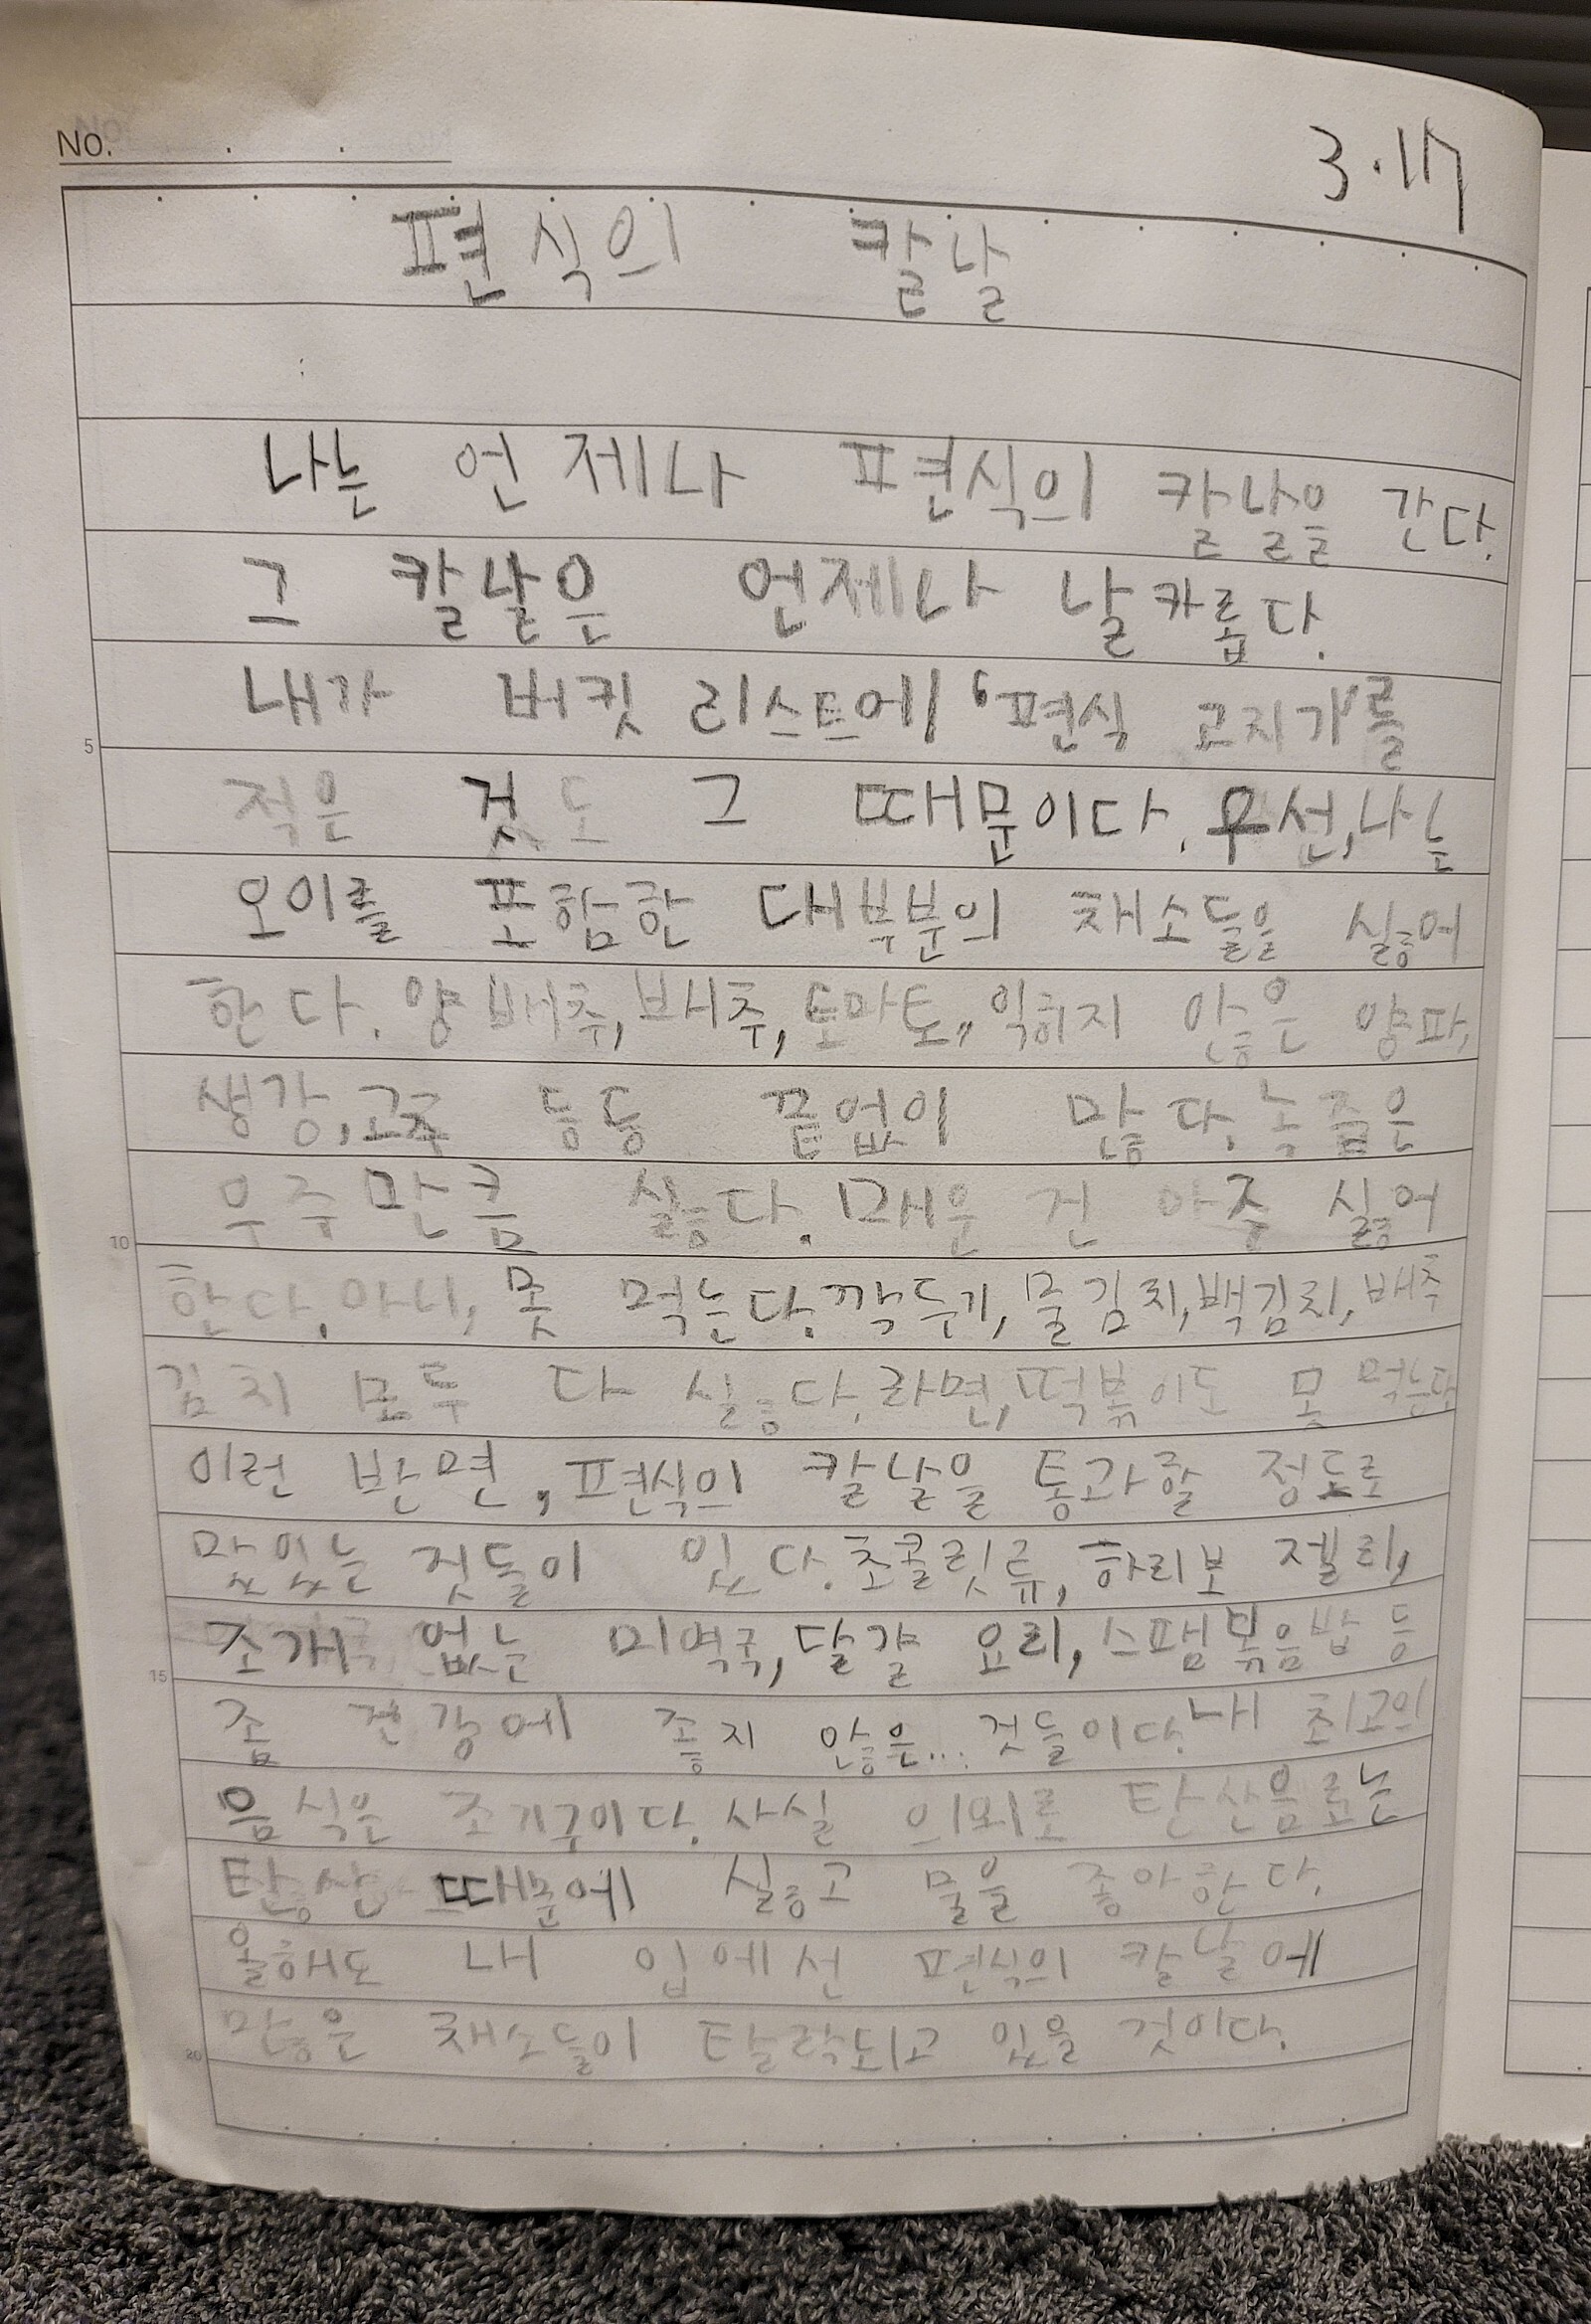 No.
3.17
편식의 칼날
나는 언제나 편식의 칼날을 간다.
그 칼날은 언제나 날카롭다.
내가 버킷 리스트에 '편식 고치기'를
적은 것도 그 때문이다. 우선, 나는
5
오이를 포함한 대부분의 채소들을 싫어
한다. 양배추, 배추, 토마토, 익히지 않은 양파,
생강, 고추 등등 끝없이 많다. 녹즙은
우주만큼 싫다. 매운 건 아주 싫어
10
한다. 아니, 못 먹는다. 깍두기, 물김치, 백김치, 배추
김치 모두 다 싫다. 라면, 떡볶이도 못 먹는다
이런 반면, 편식의 칼날을 통과할 정도로
맛있는 것들이 있다. 초콜릿류, 하리보 젤리,
조개 없는 미역국, 달걀 요리, 스팸볶음밥 등
15
좀 건강에 좋지 않은... 것들이다. 내 최고의
음식은 조기구이다. 사실 의외로 탄산음료는
탄산 때문에 싫고 물을 좋아한다.
올해도 내 입에선 편식의 칼날에
많은 채소들이 탈락되고 있을 것이다.
20